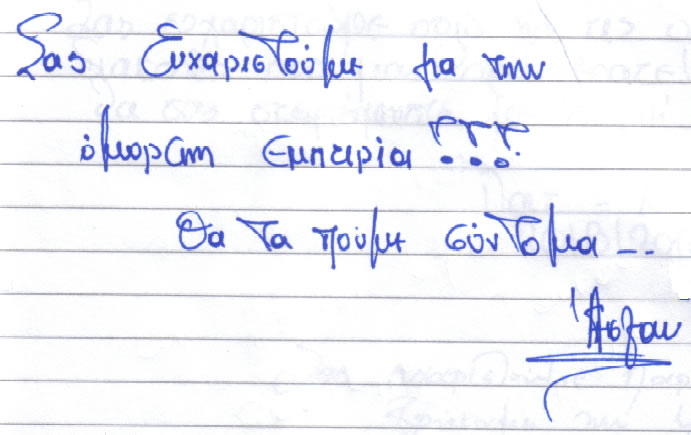 Σας Ευχαριστούμε για την
όμορφη εμπειρία !!!
Θα τα πούμε σύντομα ...